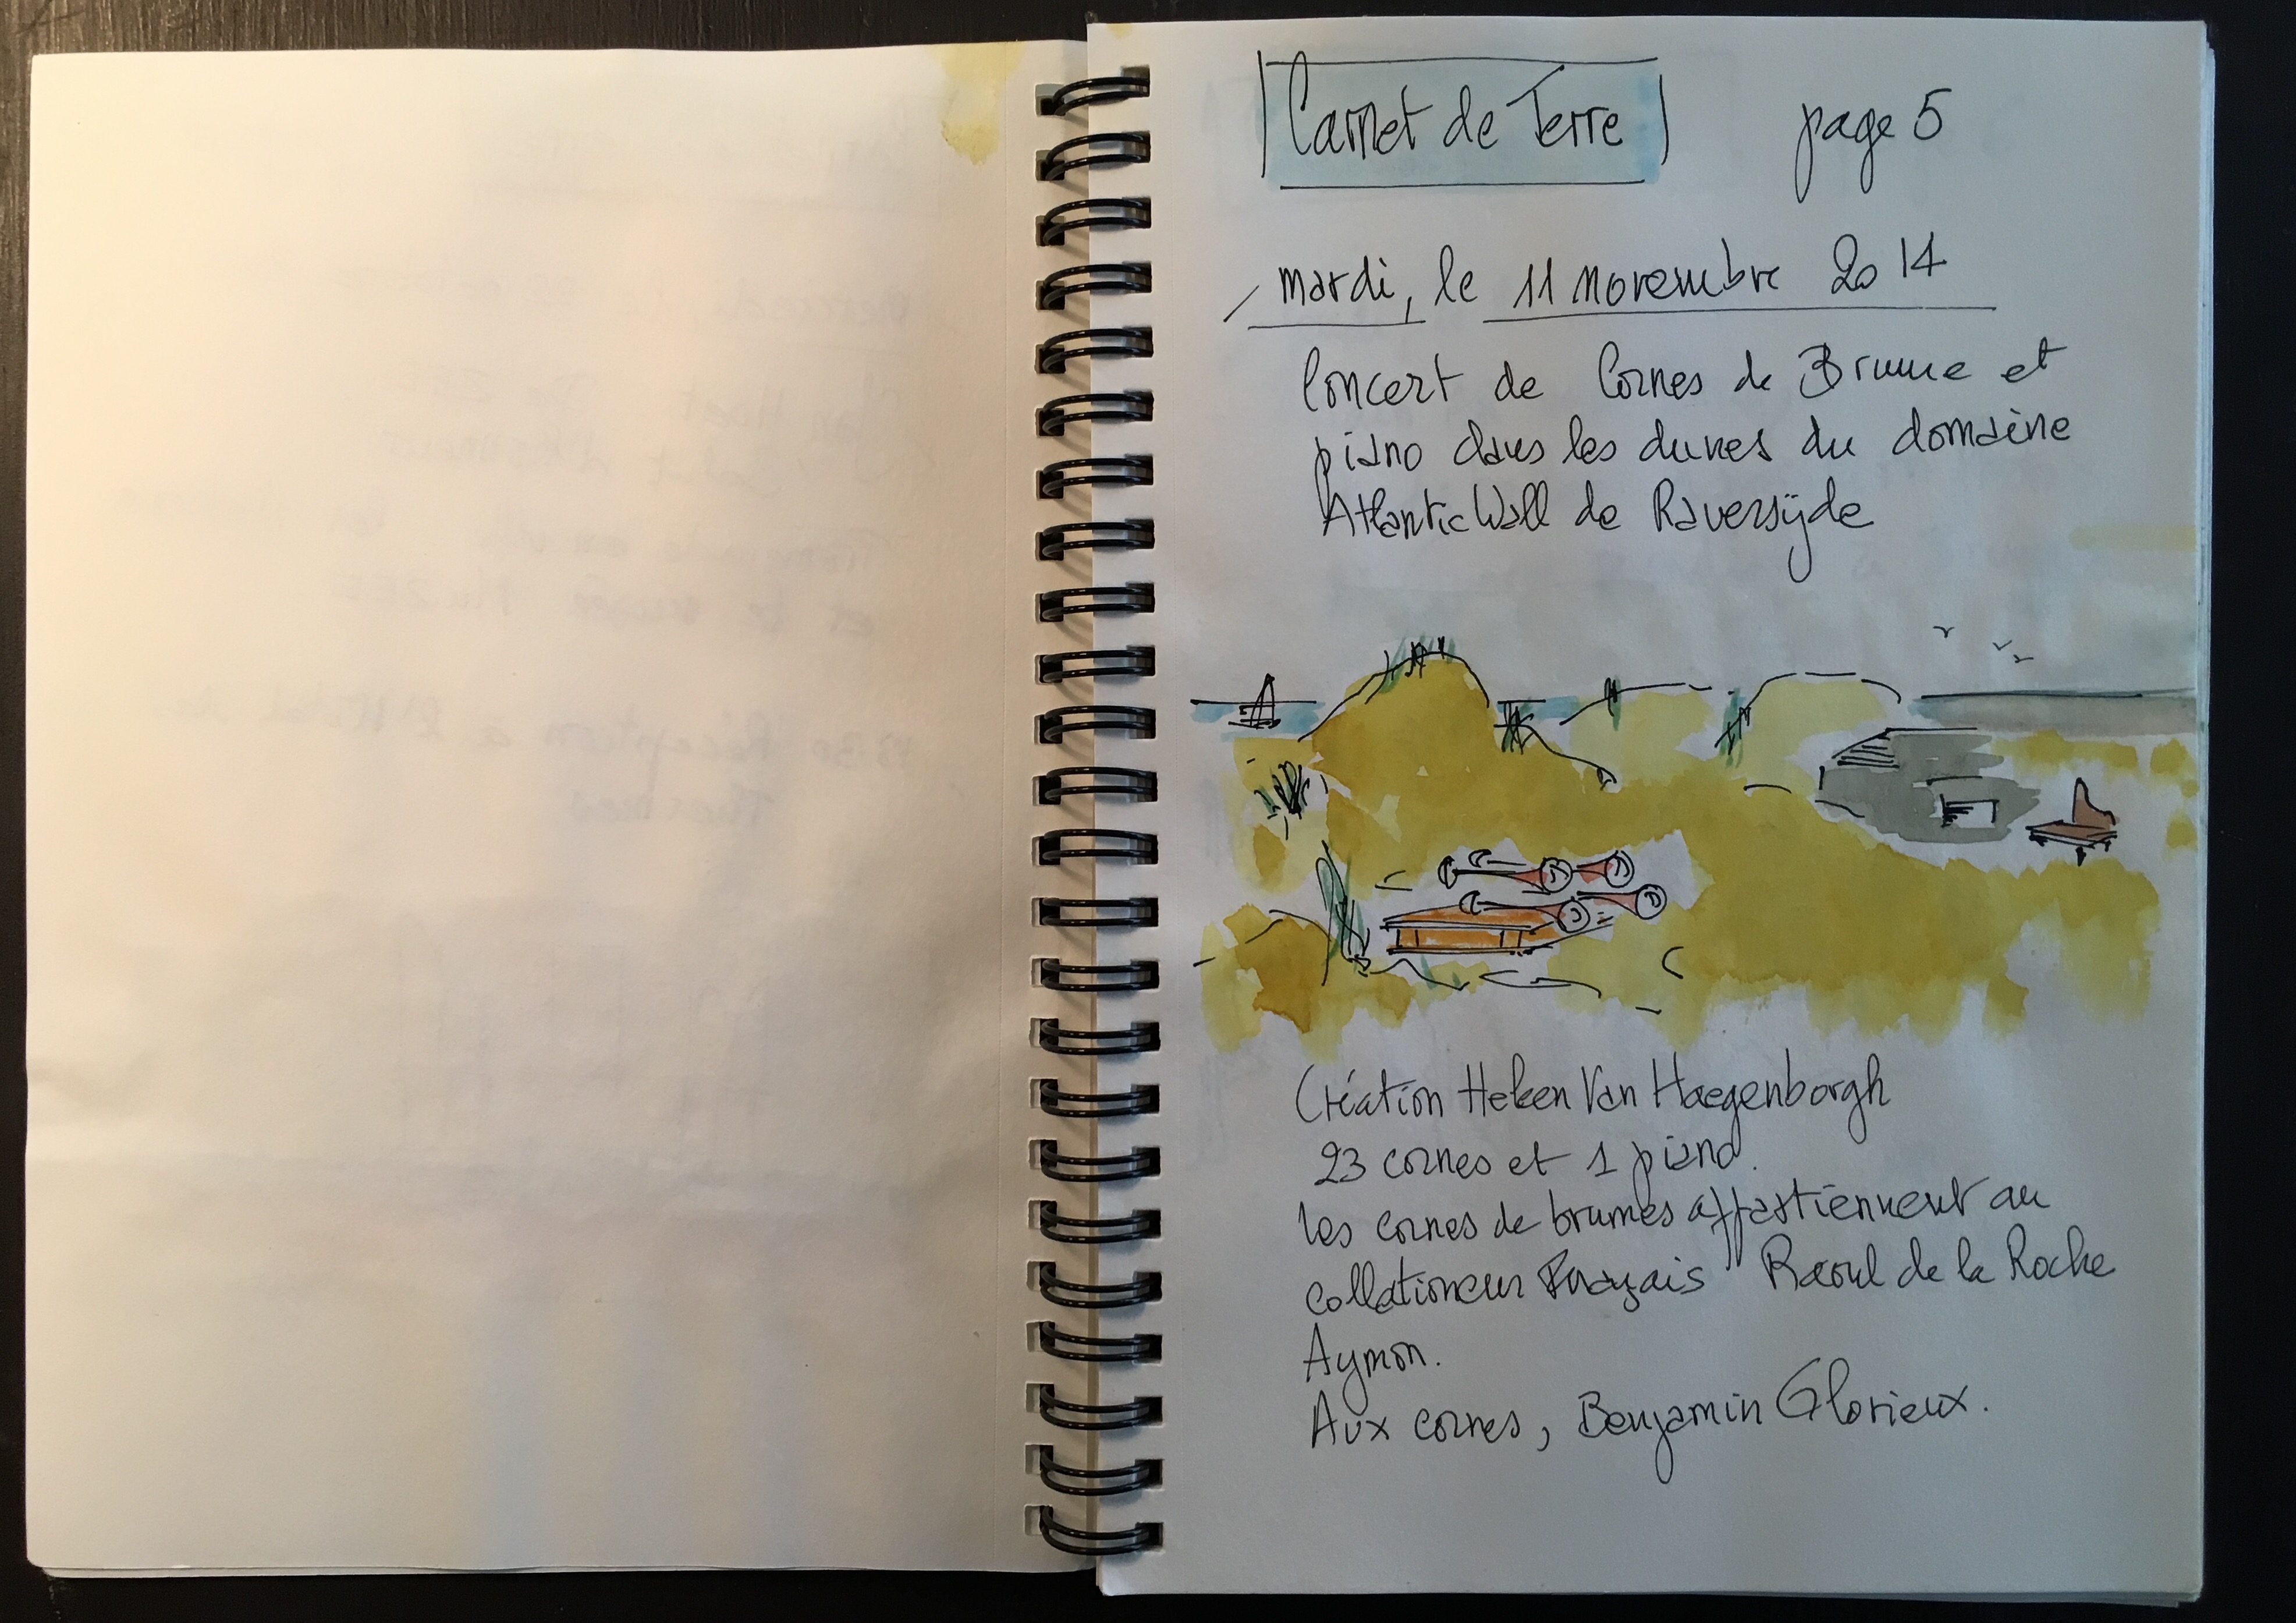 Carnet de Terre page 5
mardi, le 11 novembre 2014
Concert de Cornes de Brume et
piano dans les dunes du domaine
Atlantic Wall de Raversijde
Création Heleen Van Haegenborgh
23 cornes et 1 piano.
les cornes de brumes appartiennent au
collationeur Français Raoul de la Roche
Aymon.
Aux cornes, Benjamin Glorieux.